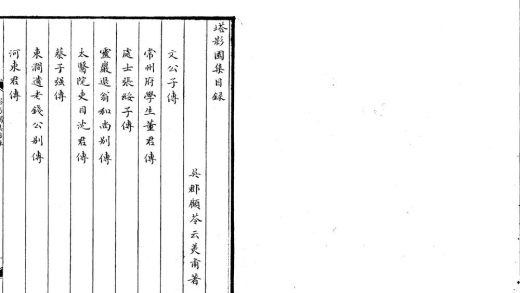 塔影園集目錄
吳郡顧苓云美甫著
文公子傳
常州府學生董君傳
處士張綏子傳
靈巖退翁和尚別傳
太醫院吏目沈君傳
蔡子强傳
東澗遺老錢公別傳
河東君傳